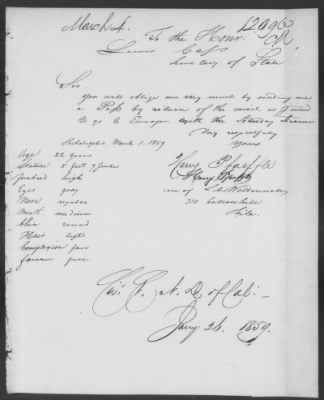 March 4.
12096
To the Honr.
Lewis Cass
Secretary of State
Sir
You will oblige me very much by sending me
a Pass by return of the mail, as I intend
to go to Europe by the Saturday Steamer
Very respectfully
Yours
Philadelphia March 1. 1859
Henry
Age 22 years
Stature 5 feet 7 Inches
forehead high
Eyes gray
Nose regular
Mouth medium
Chin round
Hair light
Complexion fair
face
care of
Phila.
of Cal:
Jany 26. 1859.